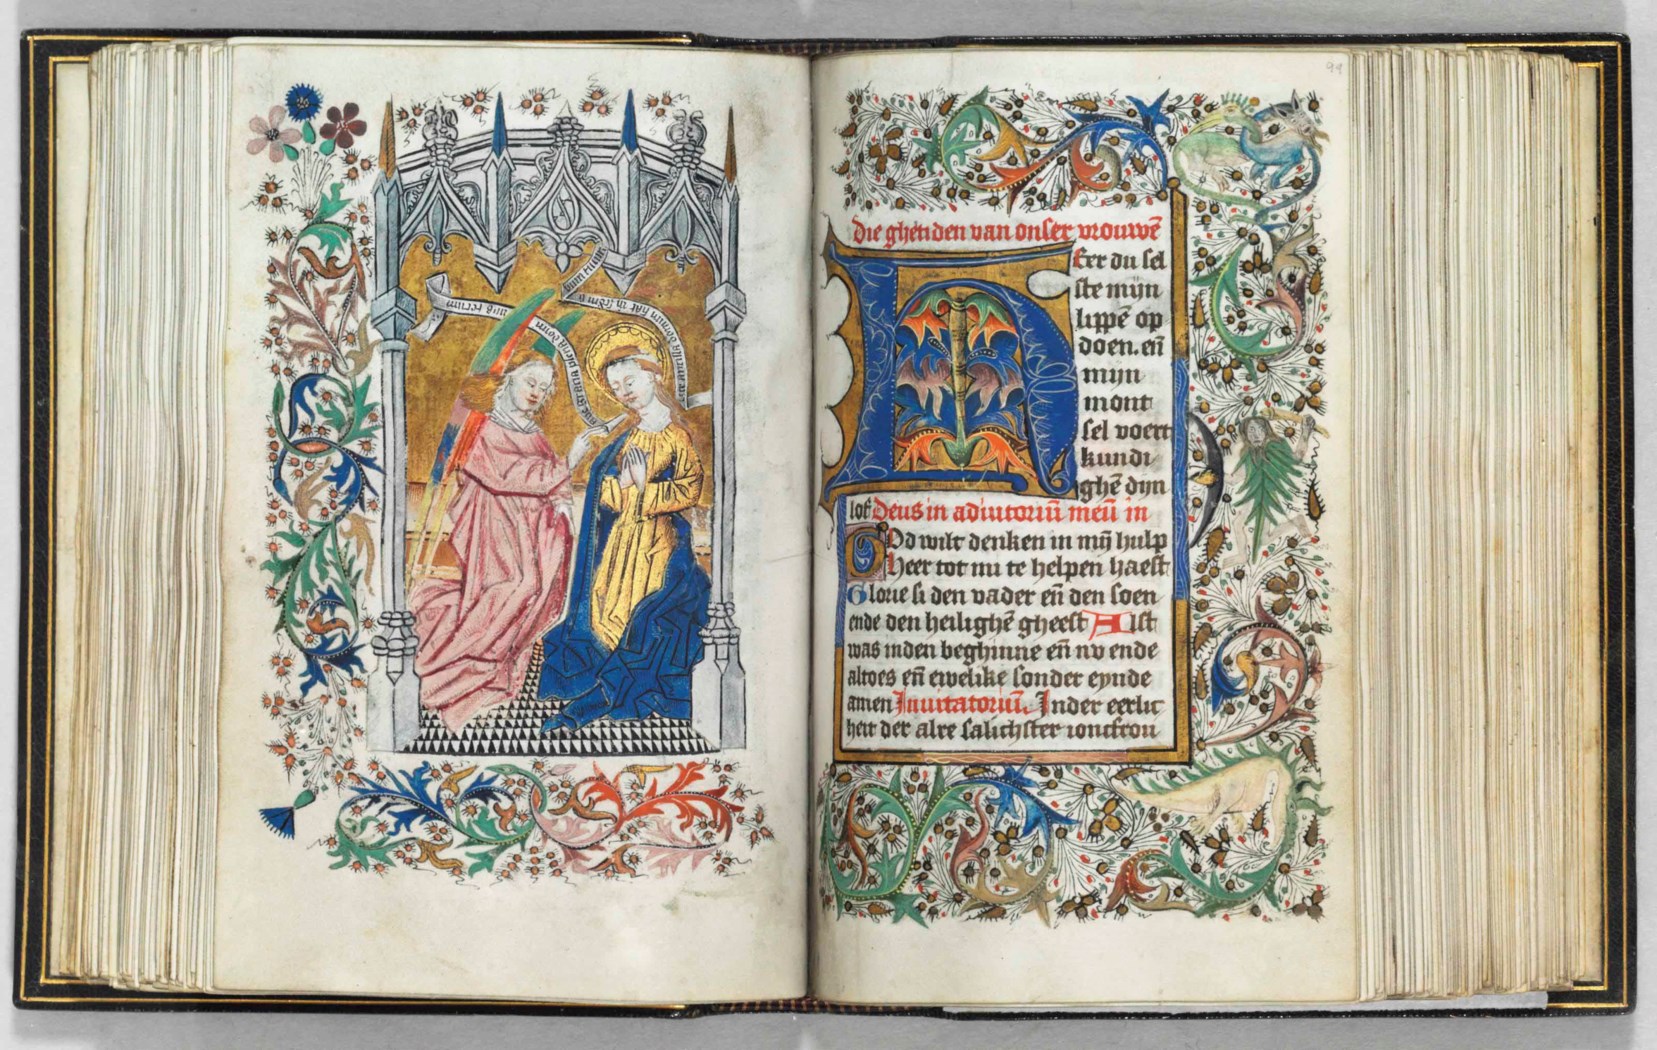 aue gracia plena dom
die ghetiden van onser vrouwē
Heer du sel
ste mijn
lippē op
doen. en̄
mijn
mont
sel voert
kundi
ghē dijn
lof Deus in adiutoriū meū in
God wilt denken in mij̄ hulp
heer tot mi te helpen haest
Glorie si den vader en̄ den soen
ende den heilighē gheest Alst
was inden beghinne en̄ nv ende
altoes en̄ ewelike sonder eynde
amen Inuitatoriū. Inder eerlic
heit der alre salichster ioncfrou